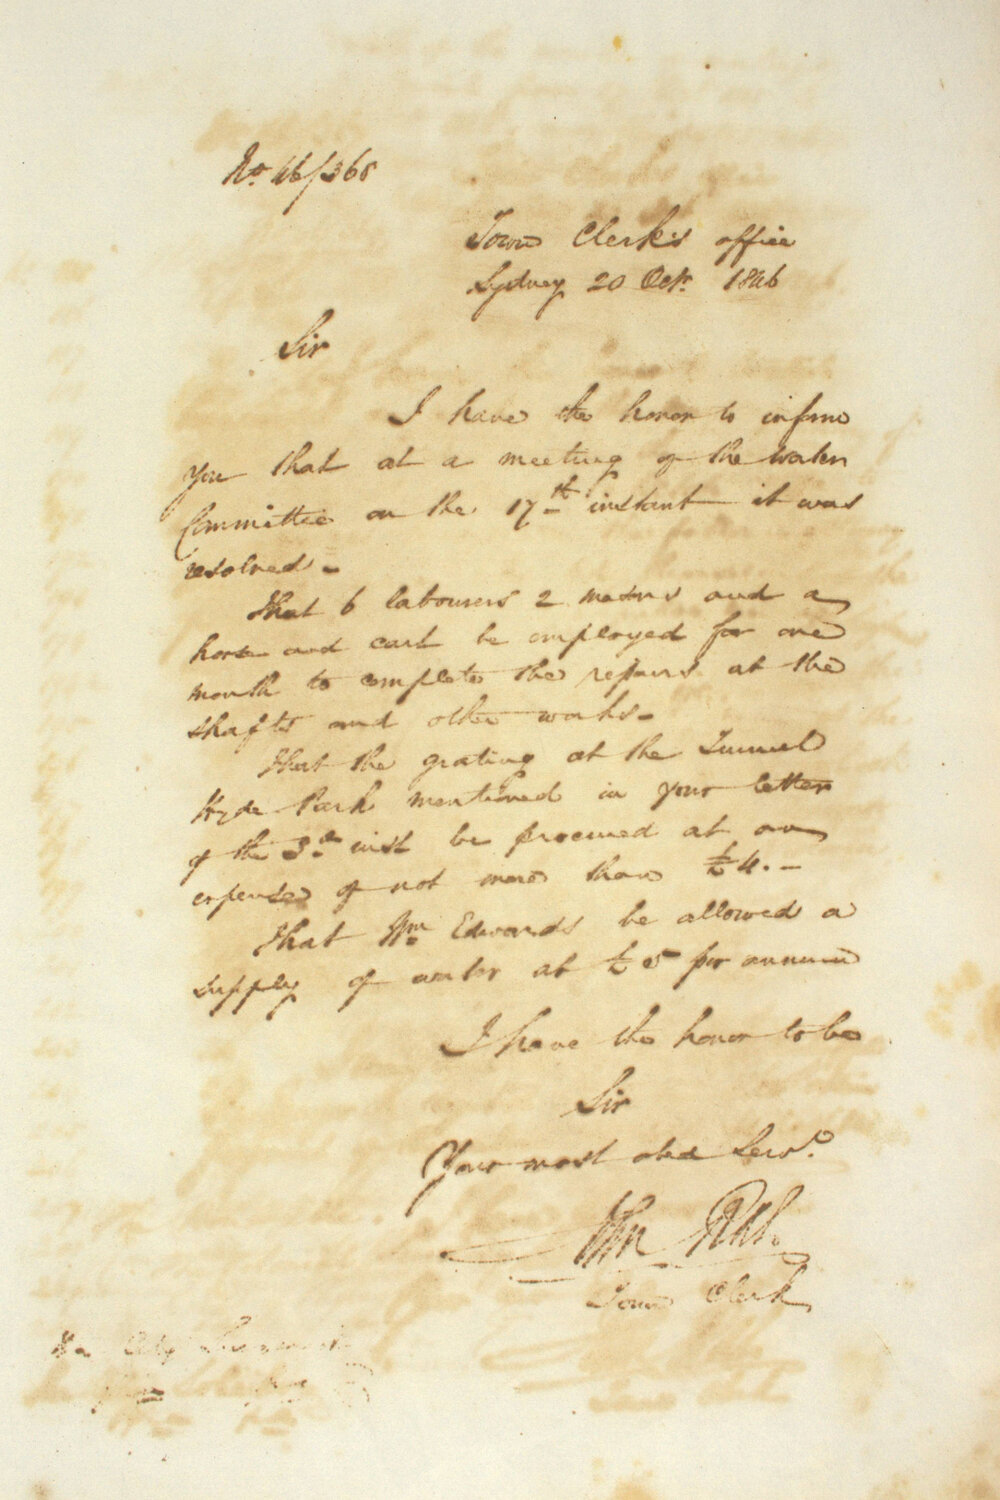 No. 46/368
Town Clerk's office
Sydney 20 Octr. 1846
Sir
I have the honor to inform
you that at a meeting of the Water
Committee on the 17th instant it was
resolved -
that 6 labourers 2 masons and a
horse and cart be employed for one
month to complete the repairs at the
shafts and other works -
that the grating at the Tunnel
Hyde Park mentioned in your letter
of the 3d inst be procured at an
expense of not more than £4. -
that Wm Edwards be allowed a
supply of water at £5 per annum
I have the honor to be
Sir
Your most obed Servt.
John
Town Clerk
City